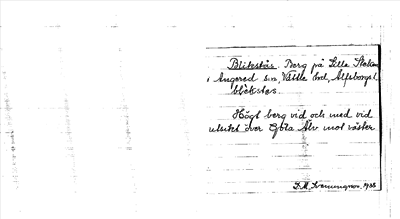 Blikstås. Berg på Lilla
i Angered sn, Vättle hd, Älfsborgs l.
blèkstos.
Högt berg vid och med vid
utsikt över Göta Älv mot väster
1938